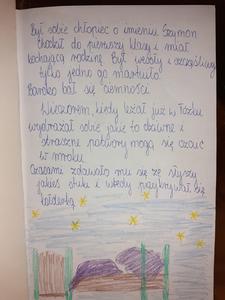 Był sobie chłopiec o imieniu Szymon
Chodził do pierwszej klasy i miał
kochającą rodzinę. Był wesoły i szczęśliwy
tylko jedno go martwiło
Bardzo bał się ciemności.
Wieczorem, kiedy leżał już w łóżku
wyobrażał sobie jakie to dziwne i
straszne potwory mogą się czaić
w mroku
Czasami zdawało mu się że słyszy
jakieś stuki i wtedy przykrywał się
kołderką